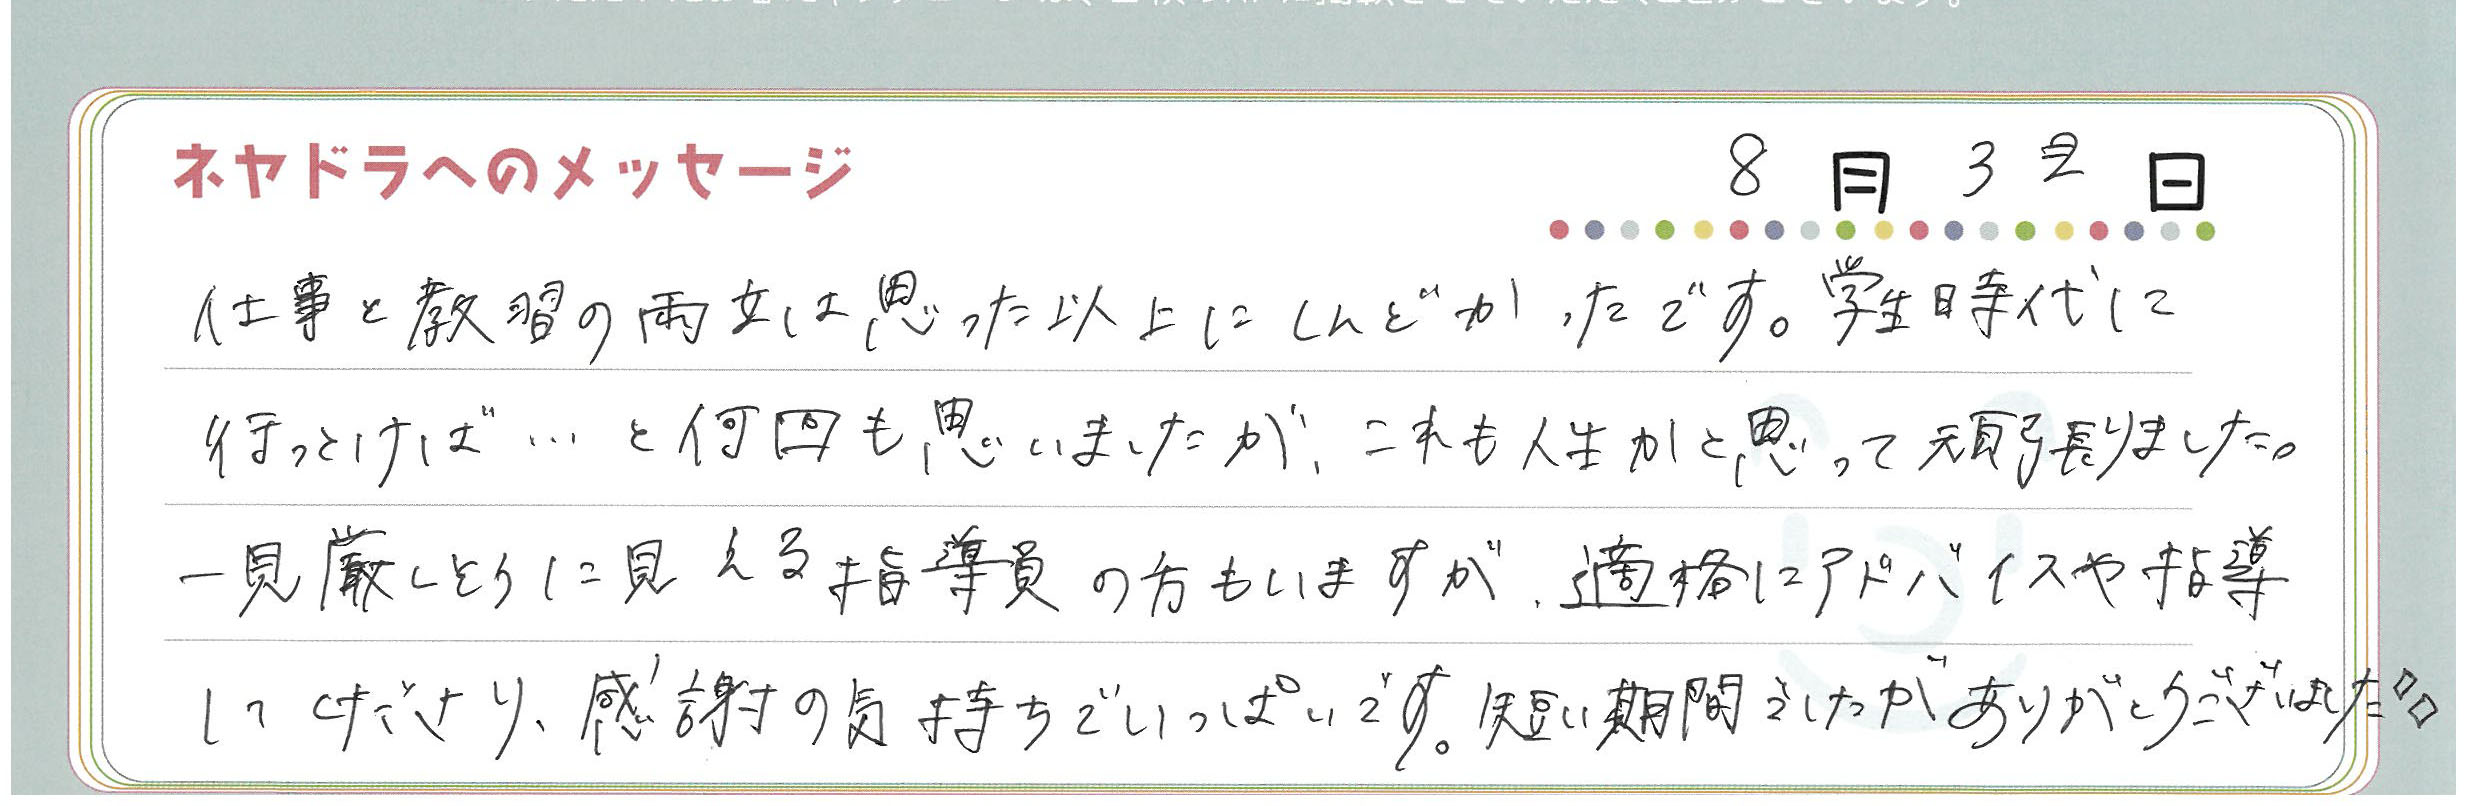 ネヤドラへのメッセージ 8月32日
仕事と教習の両立は思った以上にしんどかったです。学生時代に
行っとけば…と何回も思いましたが、これも人生かと思って頑張りました。
一見厳しそうに見える指導員の方もいますが、適格にアドバイスや指導
してくださり、感謝の気持ちでいっぱいです。短い期間でしたがありがとうございました!!